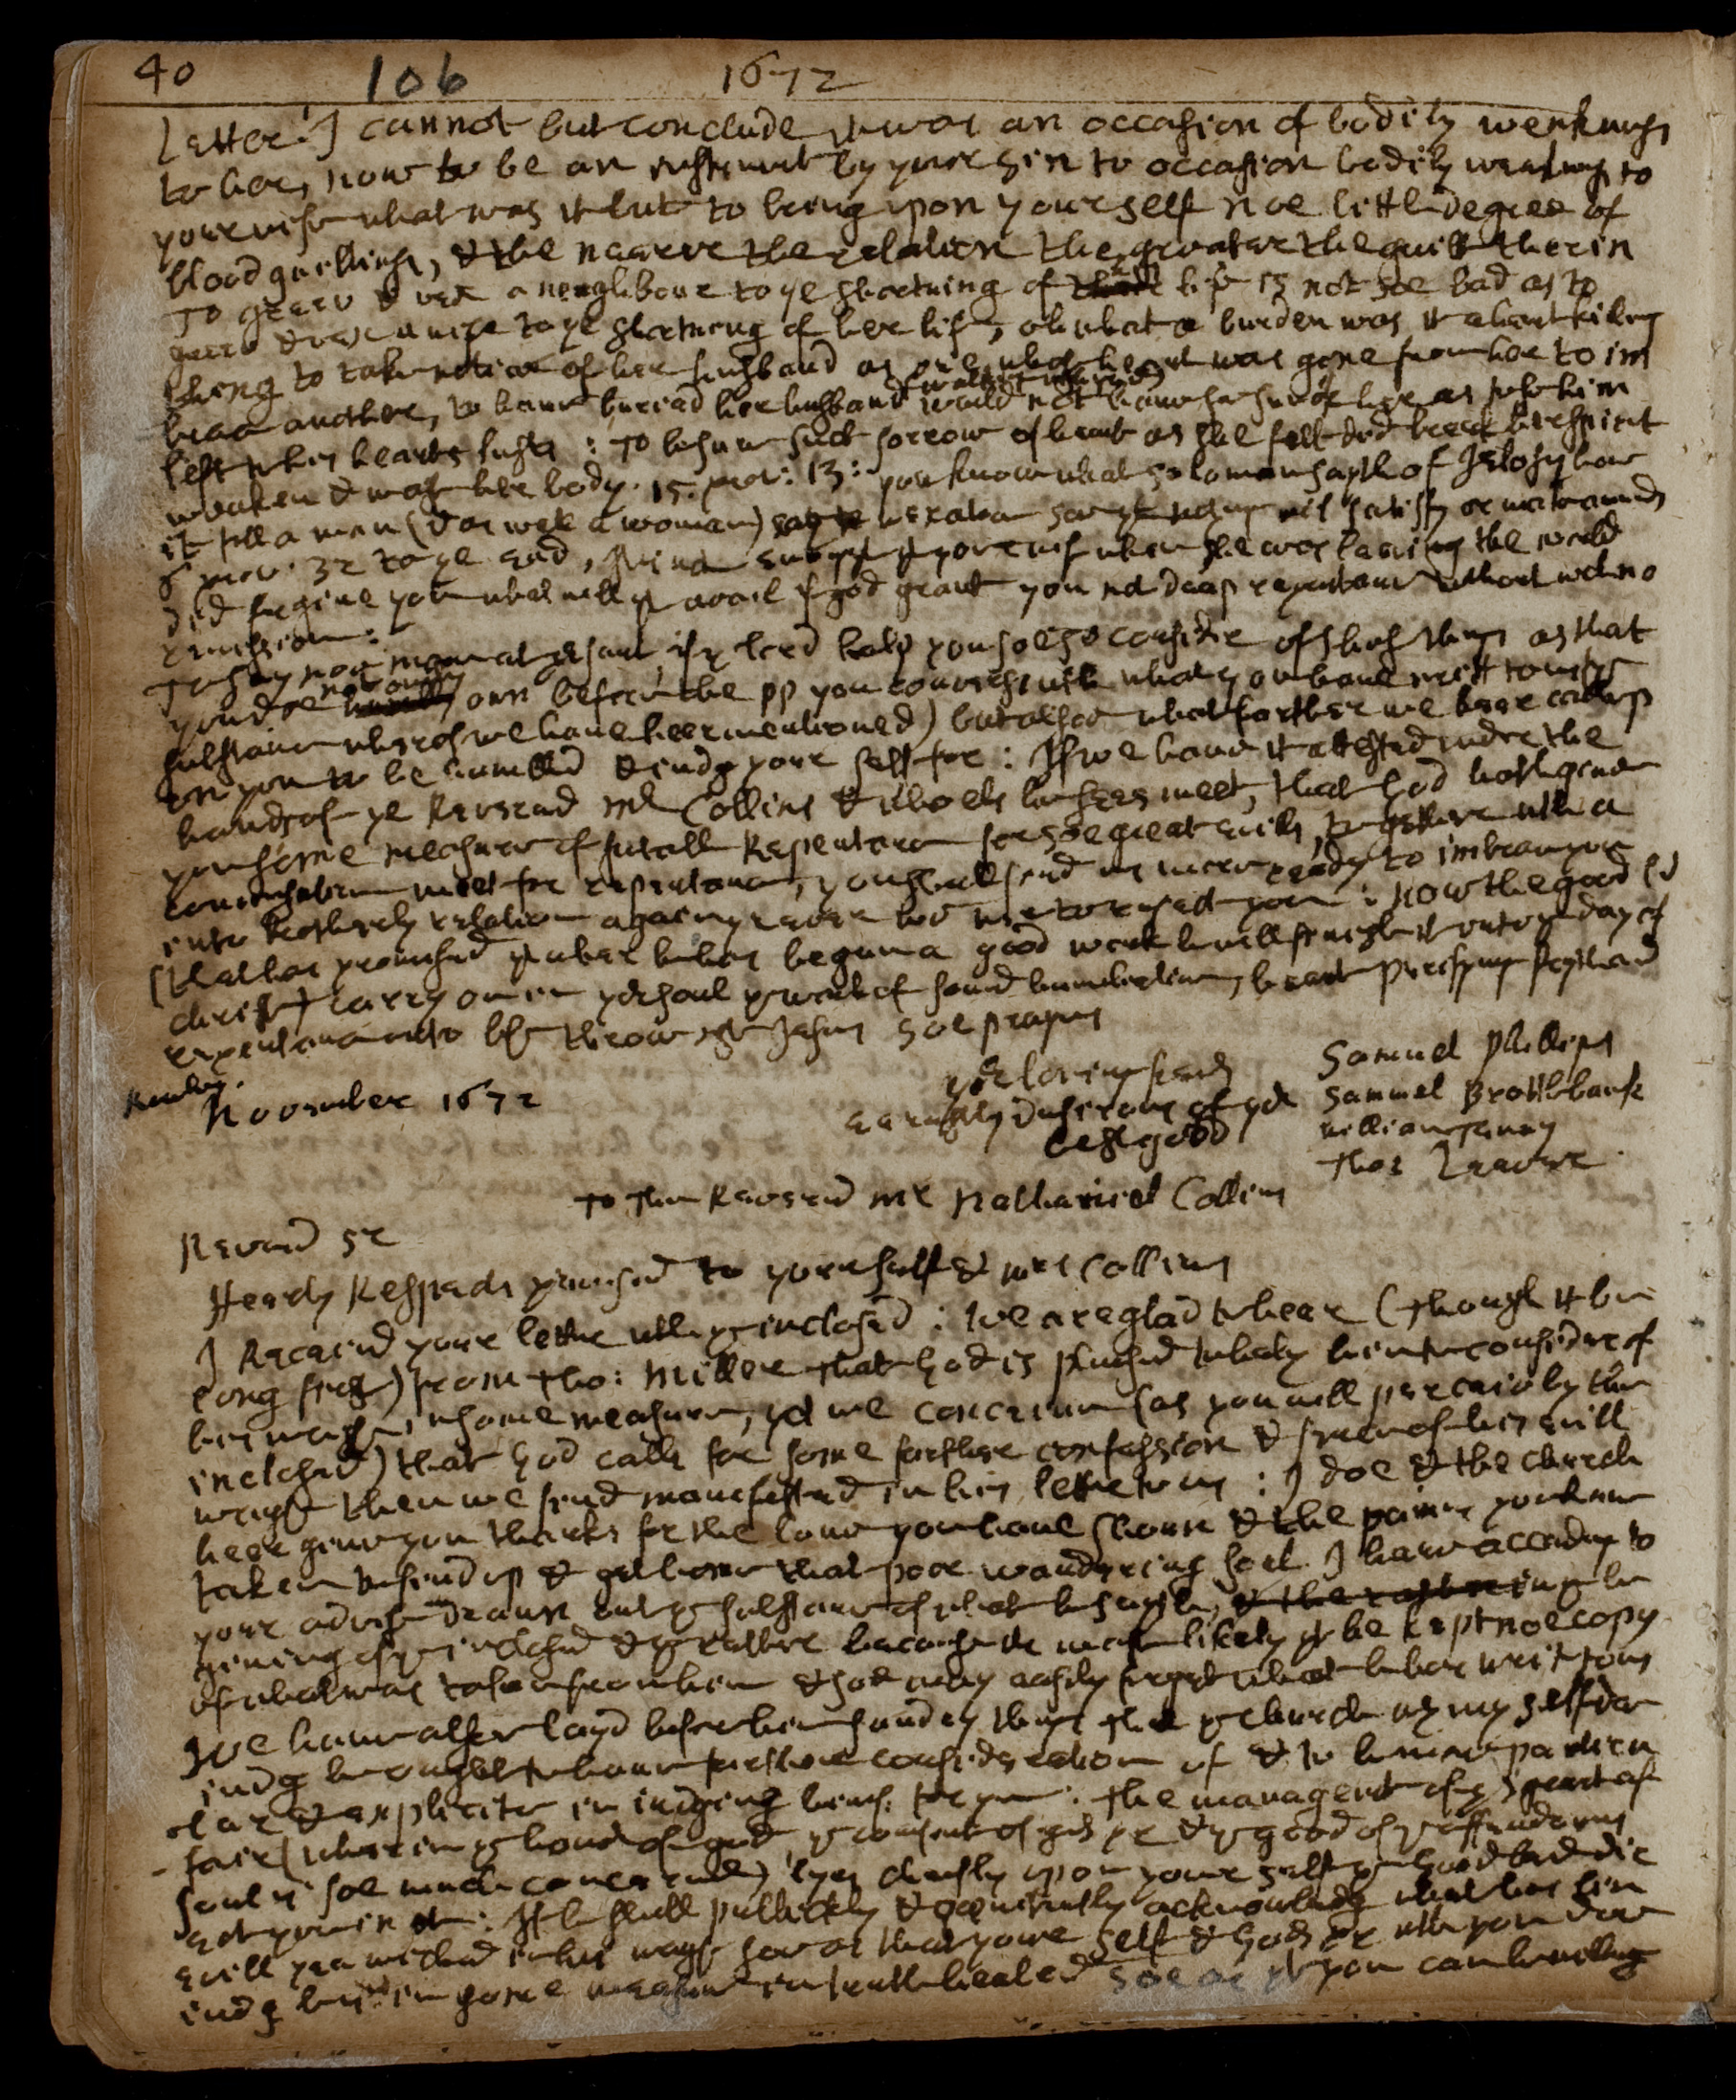 40 106 1672
Letter: I cannot but conclude it was an occasion of bodily weakness
to her, now to be an instrumt by your sin to occasion bodily weakness to
your wife what was it but to bring upon yourself noe little degree of
blood guiltines, & the nearer the relation the greater the guilt therin
To greeve & vex a neighbour to ye shortning of life is not soe bad as to
greev & vex a wife to ye shortning of her life, oh what a burden was it a heart killing
thing to take notice of her husband as one whose heart was gone from her to im
brac another, to have buried her husband would not have been as to see him
left to his hearts lusts : To be sure such sorrow of heart as she felt did break her spirit
weaken & wast her body. 15. prov: 13: you know what solomon sayth of Jelosy how
it fill a man (& as well a woman) wth
6 prov. 32 to ye end, your wife when she was leaving the world
did forgive you what will yt avail if god grant you not deep repentance without wch no
remission :
To say noe more at psent, if ye lord help you soe to consider of these things as that
you doe not only own before the pp you convers with what you have writt to us (ye
substance wherof we have heer mentioned) but alsoe what farther we heer call up
on you to be humbled & judg your self for : If we have it attested under the
hands of ye Reverend mr Collins & whoels he sees meet, that God hath given
you some measure of sutable Repentance for soe great evils, together with a
conversation meet for repentance, you shall find us more ready to imbrace you
into brotherly relation again yn ever wee were to reject you : now the good ld
(that has promised yt wher he has begun a good work he will finish it unto ye day of
christ) carry on in yor soul ye work of sound humiliation, heart purifying fayth and
repentance unto life throw xt Jesus soe prayes
Rowley.
November 1672
yor loving freinds
earnestly desirous of yor
best good
Samuel Phillips
Samuel Brocklbank
william Tenny
Thos Leaver
To The Reverend mr Nathaniel Collins
Reverd Sr
Hearty Respects presented to yourself & mrs Collins
I Received your letter with ye inclosed : We are glad to hear (though it be
long first) from Tho: Miller that God is pleased to help him to consider of
his ways in some measure, yet we concieve (as you will perceive by the
inclosed) that God calls for some farther confession & of his evill
ways then we find manifested in his letter to us : I doe & the church
heer give you thanks for the love you have shown & the paines you have
taken to find up & get home that poor wandering soul. I have according to
your advise drawn out ye substance of what he sayth,
giving of ye inclosed & ye rather because he most likely yt he kept noe copy
of what was taken from him & soe may easily forget what he has writ to us
We have alsoe layd before him sundry things that ye church as my self doe
judg he ought to have farther consideration of & to be more particu
lar & explicite in judging himself for ym : the managemt of ys great af
fair (wherin ye honor of god ye comfort of gods pp & ye good of ye offendours
soul is soe much concerned) lyes cheifly upon your self ye good lord dir
ect you in it : If he shall publickly & penitently acknowledg what has bin
evill yea wicked in his ways soe as that your self & Gods pp with you doe
judg him in some measure in truth healed soe as yt you can be willing